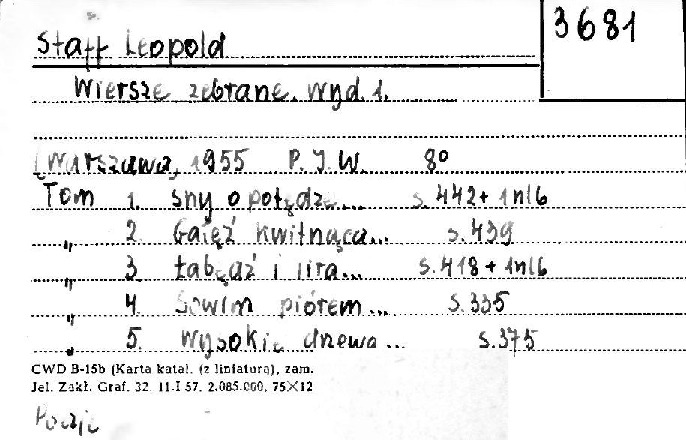 3681
Staff Leopold
Wiersze zebrane. wyd. 1.
[Warszawa, 1955 P.I.W. 8º
Tom 1. Sny o potędze... s. 442 + 1 nlb
„ 2. Gałęź kwitnąca... s. 439
„ 3. Łabędź i lira... s. 418 + 1 nlb
„ 4. Sowim piórem... s. 335
„ 5. Wysokie drzewa... s. 375
CWD B-15b (Karta katal. (z liniaturą), zam.
Jel. Zakł. Graf. 32 11-I 57. 2.085.000, 75×12
Poezje